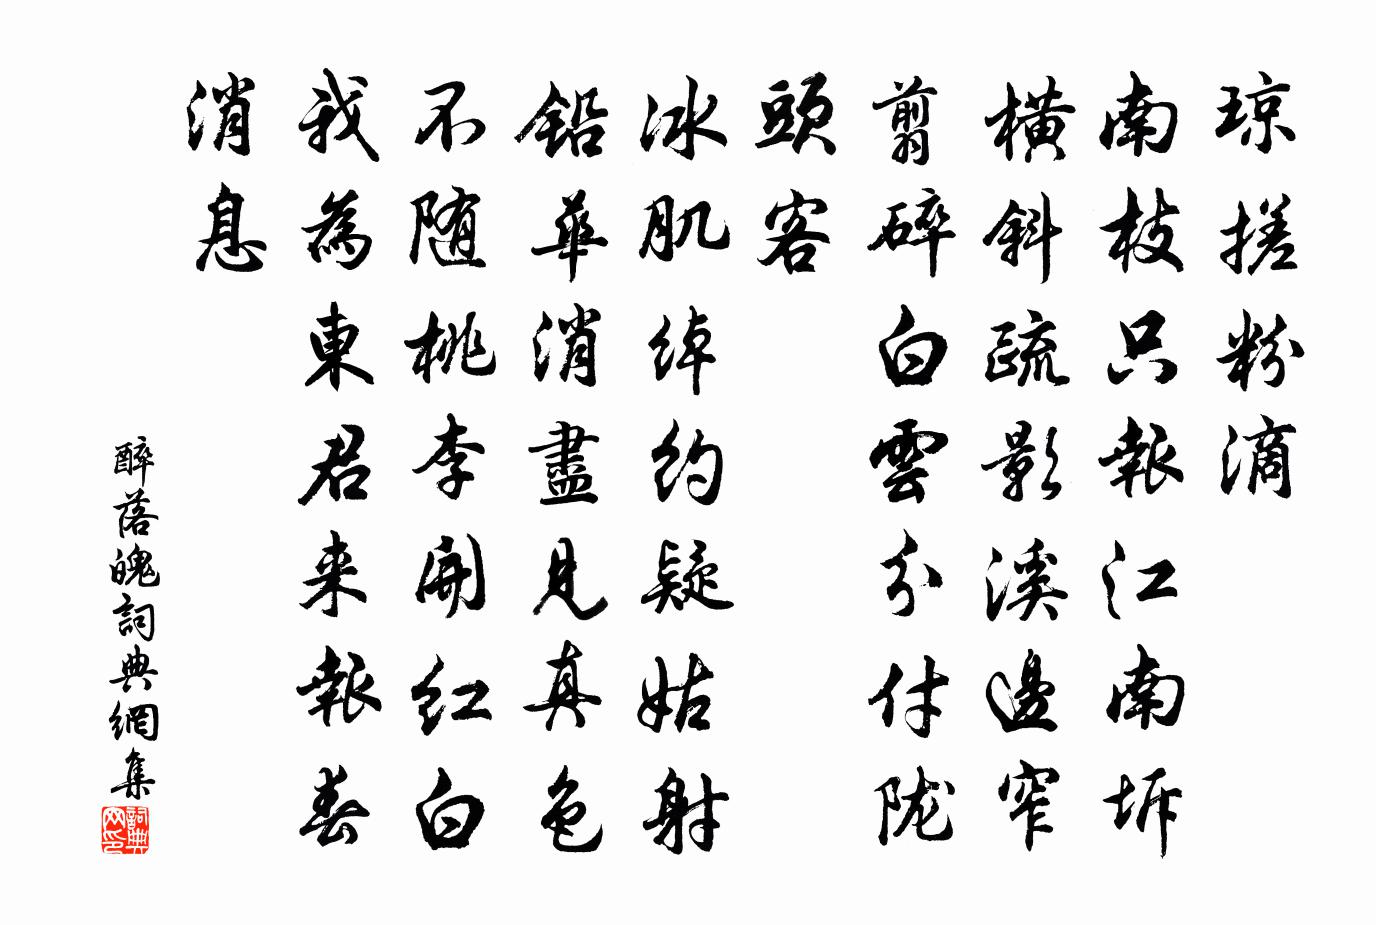 琼搓粉滴
南枝只報江南坼
橫斜疏影溪邊窄
剪碎白雲分付陇
頭客
冰肌绰约疑姑射
鉛華消盡見真色
不随桃李開紅白
我為東君来報春
消息
醉落魄詞典網集
詞典
网印